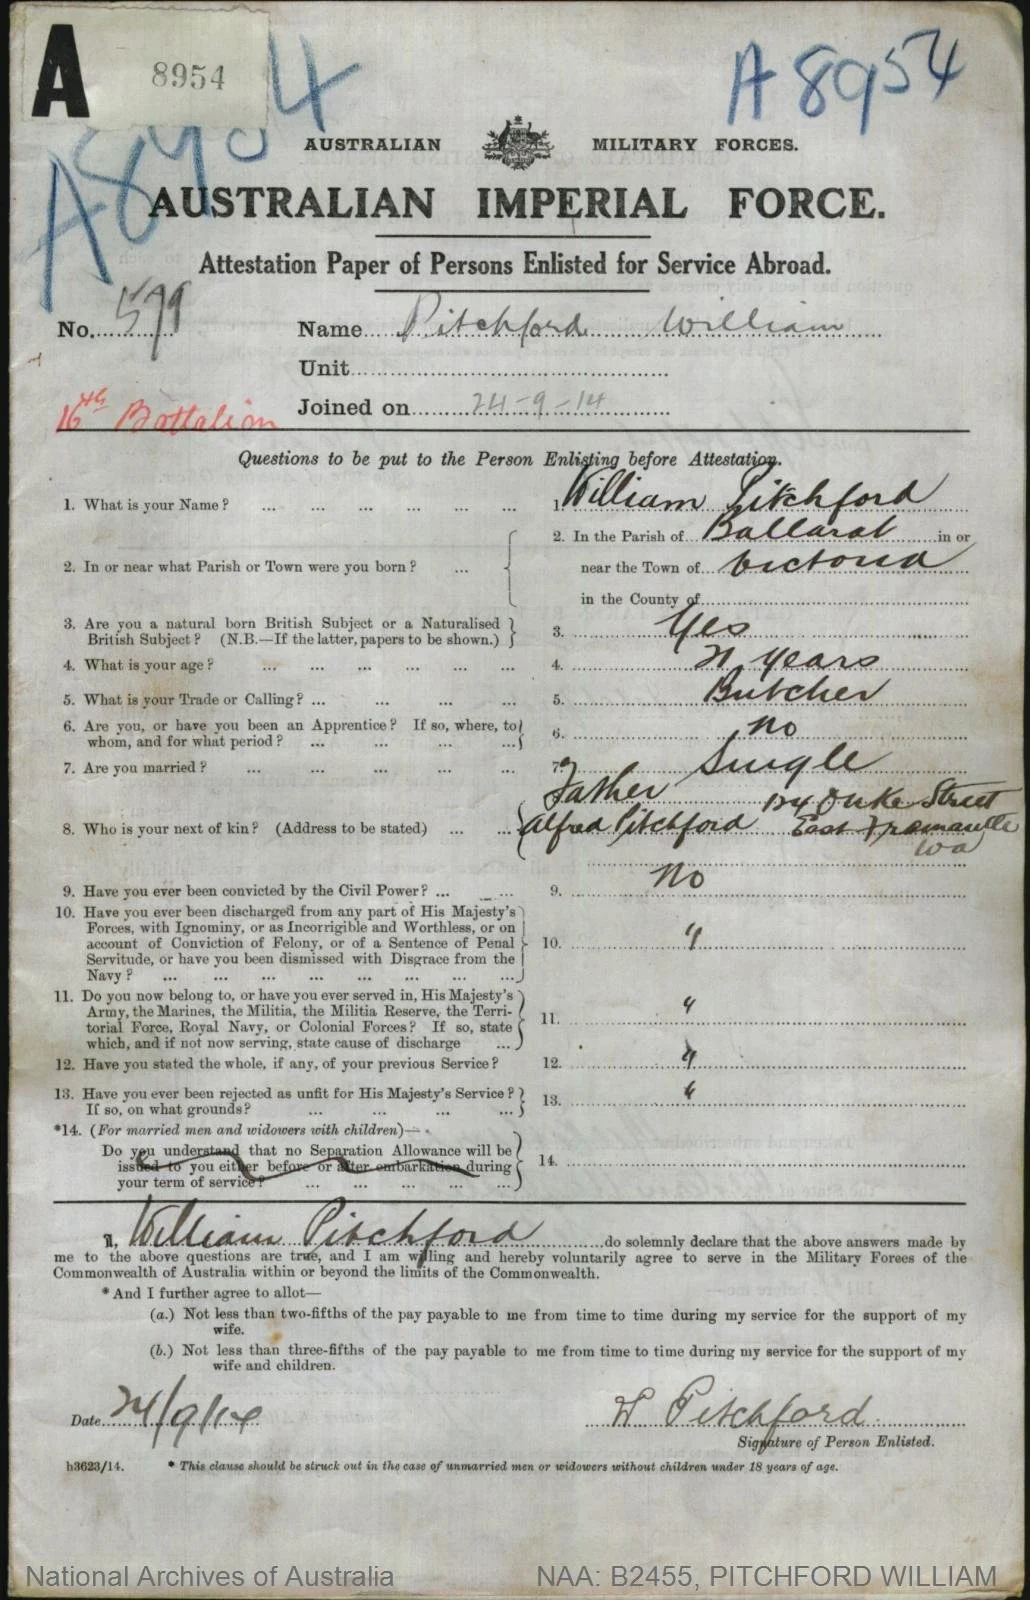 A 8954
A 8954
A 8954
AUSTRALIAN MILITARY FORCES.
AUSTRALIAN IMPERIAL FORCE.
Attestation Paper of Persons Enlisted for Service Abroad.
No. 579 Name Pitchford William
Unit
16th Battalion Joined on 24-9-14
Questions to be put to the Person Enlisting before Attestation.
1. What is your Name? ... ... ... ... ... ... 1. William Pitchford
2. In or near what Parish or Town were you born? ... 2. In the Parish of Ballarat in or
near the Town of Victoria
in the County of
3. Are you a natural born British Subject or a Naturalised
British Subject? (N.B.—If the latter, papers to be shown.) 3. Yes
4. What is your age? ... ... ... ... ... ... 4. 21 years
5. What is your Trade or Calling? ... ... ... ... 5. Butcher
6. Are you, or have you been an Apprentice? If so, where, to
whom, and for what period? ... ... ... ... 6. No
7. Are you married? ... ... ... ... ... ... 7. Single
Father 124 Duke Street
8. Who is your next of kin? (Address to be stated) ... ... Alfred Pitchford East Fremantle
Wa
9. Have you ever been convicted by the Civil Power? ... ... 9. No
10. Have you ever been discharged from any part of His Majesty's
Forces, with Ignominy, or as Incorrigible and Worthless, or on
account of Conviction of Felony, or of a Sentence of Penal 10. "
Servitude, or have you been dismissed with Disgrace from the
Navy? ... ... ... ... ... ... ... ...
11. Do you now belong to, or have you ever served in, His Majesty's
Army, the Marines, the Militia, the Militia Reserve, the Terri-
torial Force, Royal Navy, or Colonial Forces? If so, state 11. "
which, and if not now serving, state cause of discharge ...
12. Have you stated the whole, if any, of your previous Service? 12. "
13. Have you ever been rejected as unfit for His Majesty's Service?
If so, on what grounds? ... ... ... ... 13. "
*14. (For married men and widowers with children)—
Do you understand that no Separation Allowance will be
issued to you either before or after embarkation during 14.
your term of service? ... ... ... ... ...
I, William Pitchford do solemnly declare that the above answers made by
me to the above questions are true, and I am willing and hereby voluntarily agree to serve in the Military Forces of the
Commonwealth of Australia within or beyond the limits of the Commonwealth.
* And I further agree to allot—
(a.) Not less than two-fifths of the pay payable to me from time to time during my service for the support of my
wife.
(b.) Not less than three-fifths of the pay payable to me from time to time during my service for the support of my
wife and children.
Date 24/9/14 W Pitchford
Signature of Person Enlisted.
h3623/14. * This clause should be struck out in the case of unmarried men or widowers without children under 18 years of age.
National Archives of Australia NAA: B2455, PITCHFORD WILLIAM